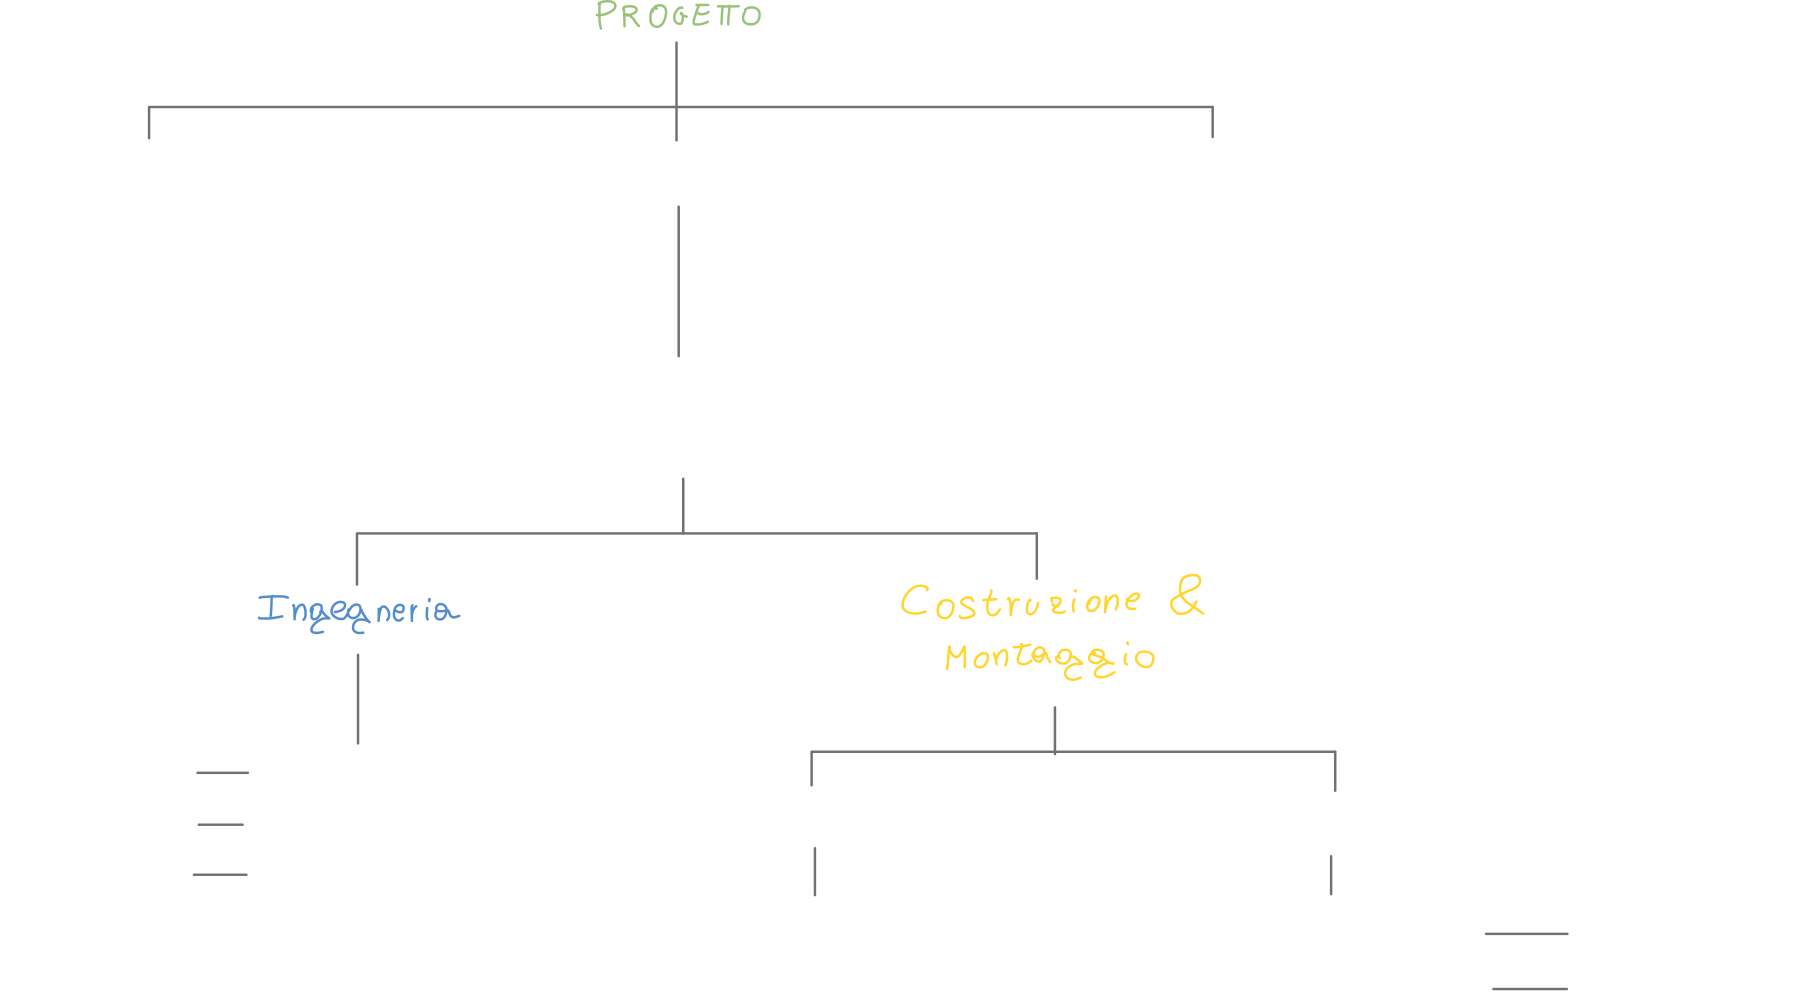 PROGETTO
Ingegneria
Costruzione &
Montaggio